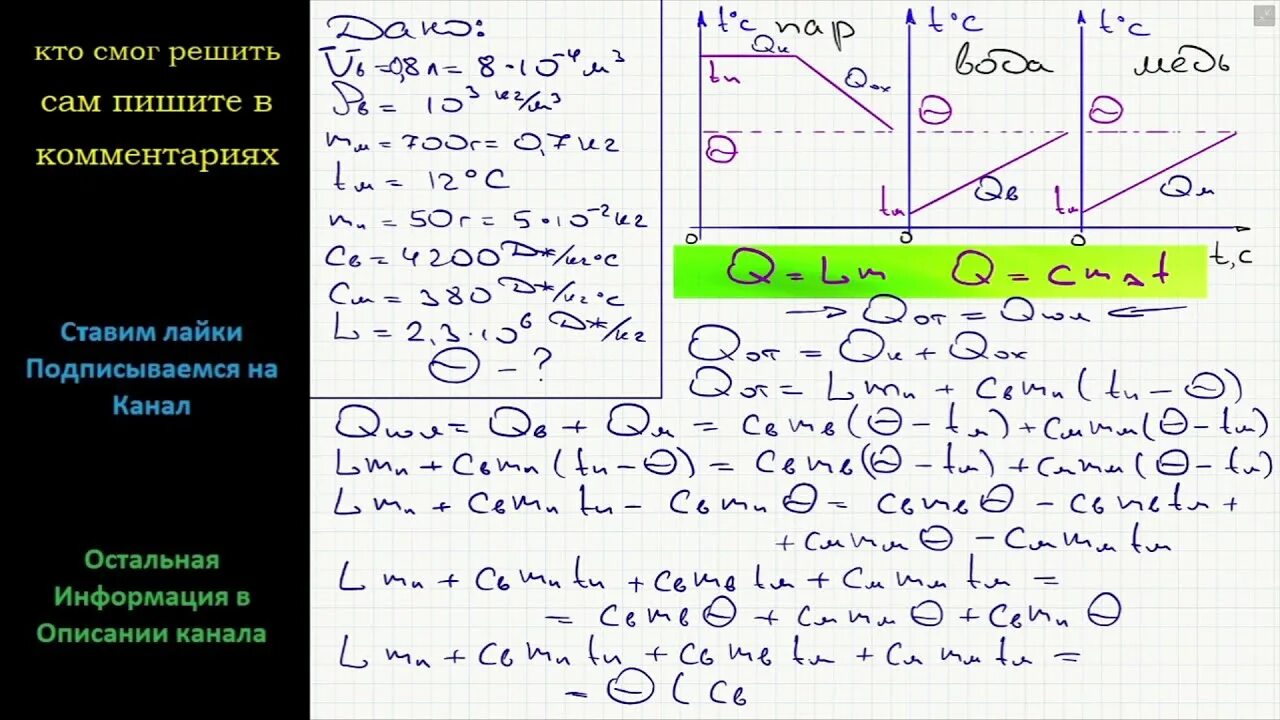 кто смог решить
сам пишите в
комментариях
Ставим лайки
Подписываемся на
Канал
Остальная
Информация в
Описании канала
Дано:
Vв = 0,8 л = 8·10⁻⁴ м³
ρв = 10³ кг/м³
mм = 700г = 0,7 кг
tм = 12°C
mп = 50г = 5·10⁻² кг
Cв = 4200 Дж/кг°C
Cм = 380 Дж/кг°C
L = 2,3·10⁶ Дж/кг
Θ - ?
t°C пар
Qк
tп
Qох
Θ
0
t°C
вода
Θ
Qв
tм
0
t°C
медь
Θ
Qм
tм
0
t,c
Q = Lm Q = cmΔt
→ Qот = Qпол ←
Qот = Qк + Qох
Qот = Lmп + Cвmп(tп - Θ)
Qпол = Qв + Qм = Cвmв(Θ - tм) + Cмmм(Θ - tм)
Lmп + Cвmп(tп - Θ) = Cвmв(Θ - tм) + Cмmм(Θ - tм)
Lmп + Cвmпtп - CвmпΘ = CвmвΘ - Cвmвtм +
+ CмmмΘ - Cмmмtм
Lmп + Cвmпtп + Cвmвtм + Cмmмtм =
= CвmвΘ + CмmмΘ + CвmпΘ
Lmп + Cвmпtп + Cвmвtм + Cмmмtм =
= Θ(Cв